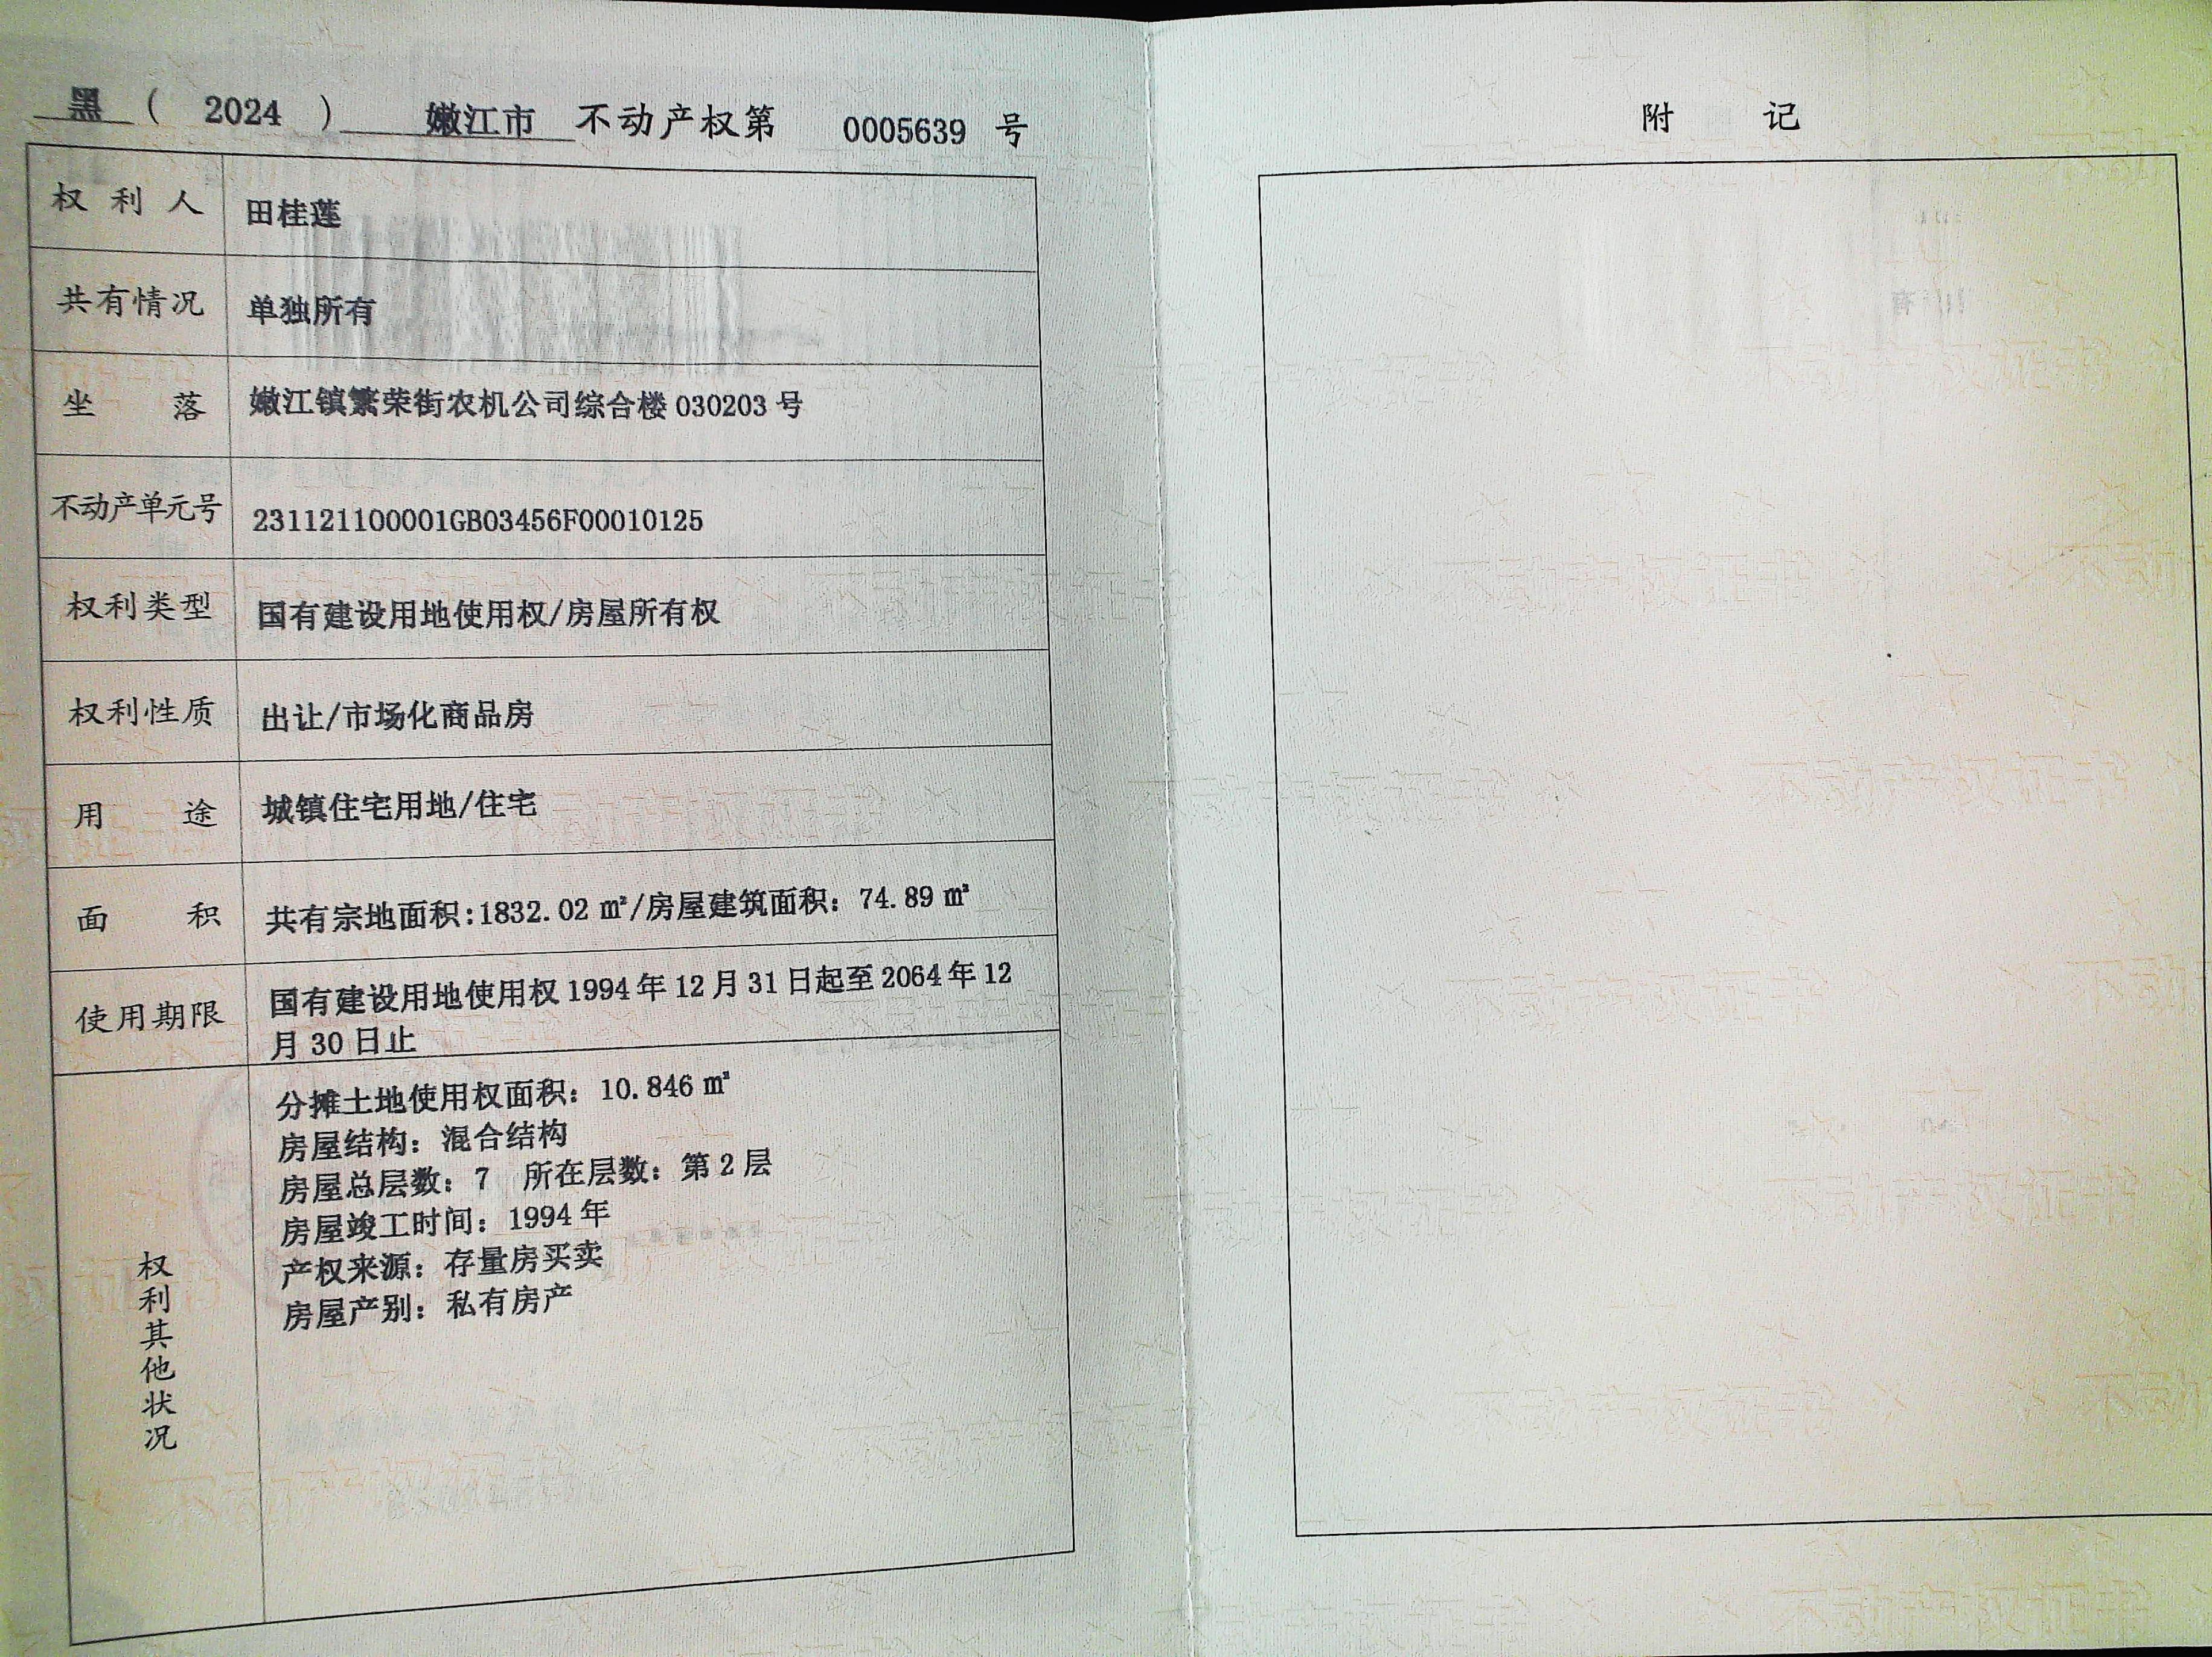 黑 ( 2024 ) 嫩江市 不动产权第 0005639 号
权利人 田桂莲
共有情况 单独所有
坐落 嫩江镇繁荣街农机公司综合楼 030203 号
不动产单元号 231121100001GB03456F00010125
权利类型 国有建设用地使用权/房屋所有权
权利性质 出让/市场化商品房
用途 城镇住宅用地/住宅
面积 共有宗地面积:1832.02 ㎡/房屋建筑面积: 74.89 ㎡
使用期限 国有建设用地使用权 1994 年 12 月 31 日起至 2064 年 12
月 30 日止
权利其他状况
分摊土地使用权面积: 10.846 ㎡
房屋结构: 混合结构
房屋总层数: 7 所在层数: 第 2 层
房屋竣工时间: 1994 年
产权来源: 存量房买卖
房屋产别: 私有房产
附记